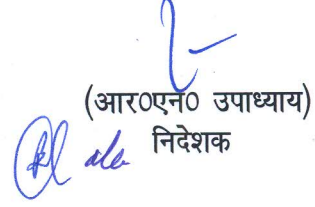 (आर०एन० उपाध्याय)
निदेशक